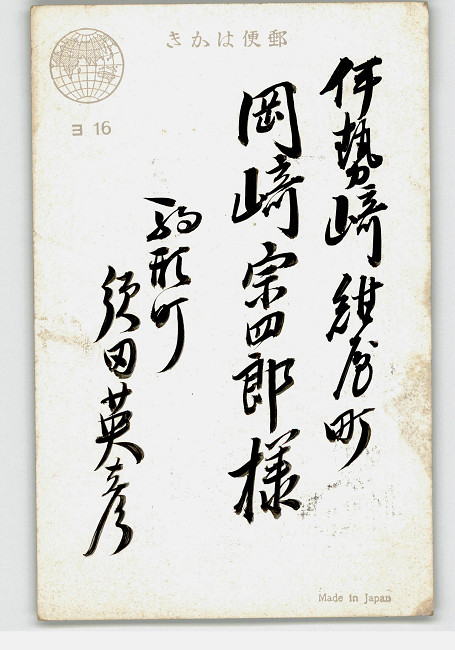 きかは便郵
ヨ 16
伊勢﨑紺屋町
岡﨑宗四郎様
駒形町
須田英彦
Made in Japan